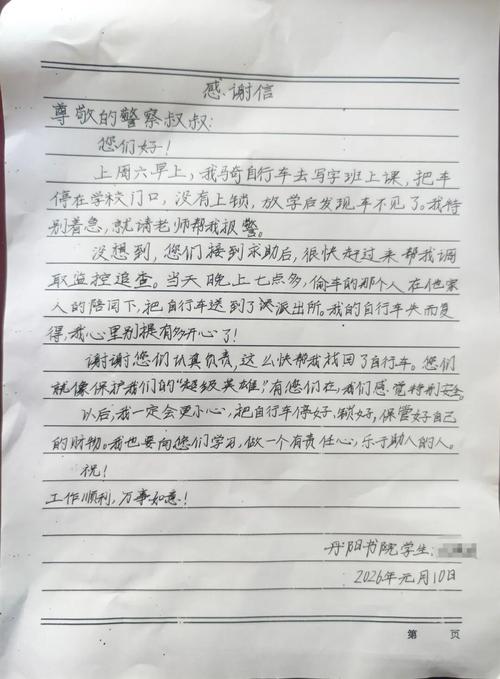 感谢信
尊敬的警察叔叔:
您们好!
上周六早上,我骑自行车去写字班上课,把车
停在学校门口,没有上锁,放学后发现车不见了。我特
别着急,就请老师帮我报警。
没想到,您们接到求助后,很快赶过来帮我调
取监控追查。当天晚上七点多,偷车的那个人在他家
人的陪同下,把自行车送到了派出所。我的自行车失而复
得,我心里别提有多开心了!
谢谢您们认真负责,这么快帮我找回了自行车。您们
就像保护我们的“超级英雄”有您们在,我们感觉特别安全。
以后,我一定会更小心,把自行车停好、锁好,保管好自己
的财物。我也要向您们学习,做一个有责任心,乐于助人的人。
祝!
工作顺利,万事如意!
丹阳书院学生:
2026年元月10日
第 页